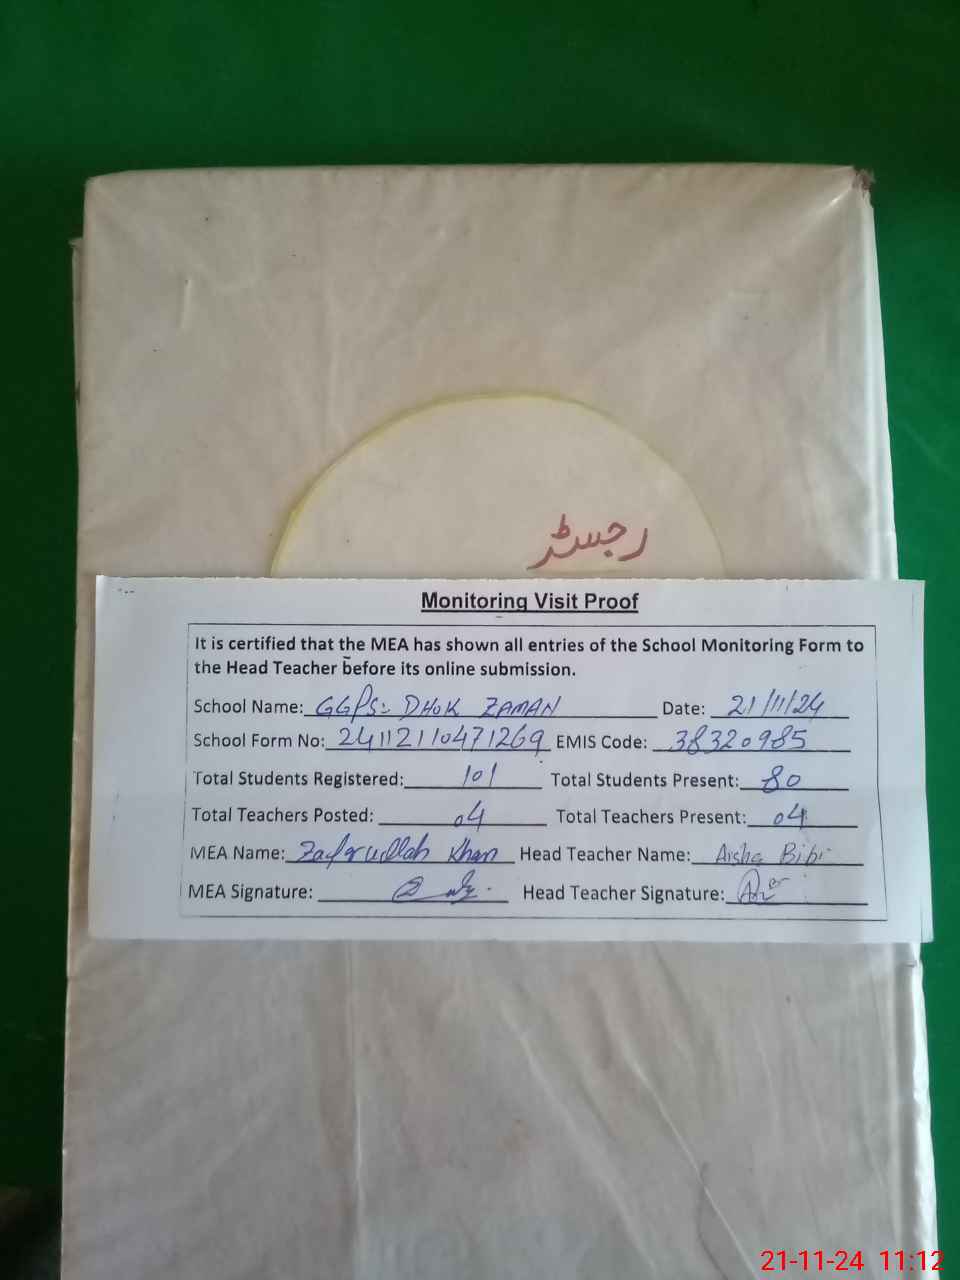 رجسٹر
Monitoring Visit Proof
It is certified that the MEA has shown all entries of the School Monitoring Form to
the Head Teacher before its online submission.
School Name: GGPS: DHOK ZAMAN Date: 21/11/24
School Form No: 24112110471269 EMIS Code: 38320985
Total Students Registered: 101 Total Students Present: 80
Total Teachers Posted: 04 Total Teachers Present: 04
MEA Name: Zafarullah Khan Head Teacher Name: Aisha Bibi
MEA Signature: Head Teacher Signature:
21-11-24 11:12